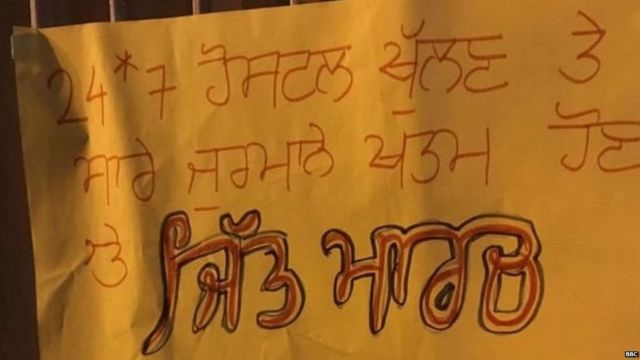 24*7 ਹੋਸਟਲ ਖੁੱਲਣ ਤੇ
ਸਾਰੇ ਜੁਰਮਾਨੇ ਖਤਮ ਹੋਣ
ਤੇ ਜਿੱਤ ਮਾਰਚ
BBC